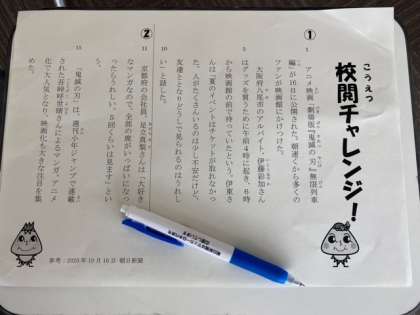 こうえつ
校閲チャレンジ！
①
1
アニメ映画「劇場版『鬼滅の刃』無限列車
編」が16日に公開された。朝速くから多くの
ファンが映画館にかけつけた。
大阪府八尾市のアルバイト、伊藤彩加さん
5
はグッズを買うために午前4時に起き、6時
から映画館の前で待っていたという。伊東さ
んは「夏のイベントはチケットが取れなかっ
た。人がたくさんいるのは少し不安だけど、
友達ととなりどうしで見られるのはうれし
10
い」と話した。
②
11
京都府の会社員、
さんは「大好き
なマンガなので、全部の席がいっぱいになっ
たらうれしい。5回くらいは見ます」とい
う。
15
「鬼滅の刃」は、週刊少年ジャンプで連載
された吾峠呼世晴さんによるマンガ。アニメ
化で大人気となり、映画化も大きな注目を集
めた。
参考：2020年10月16日 朝日新聞